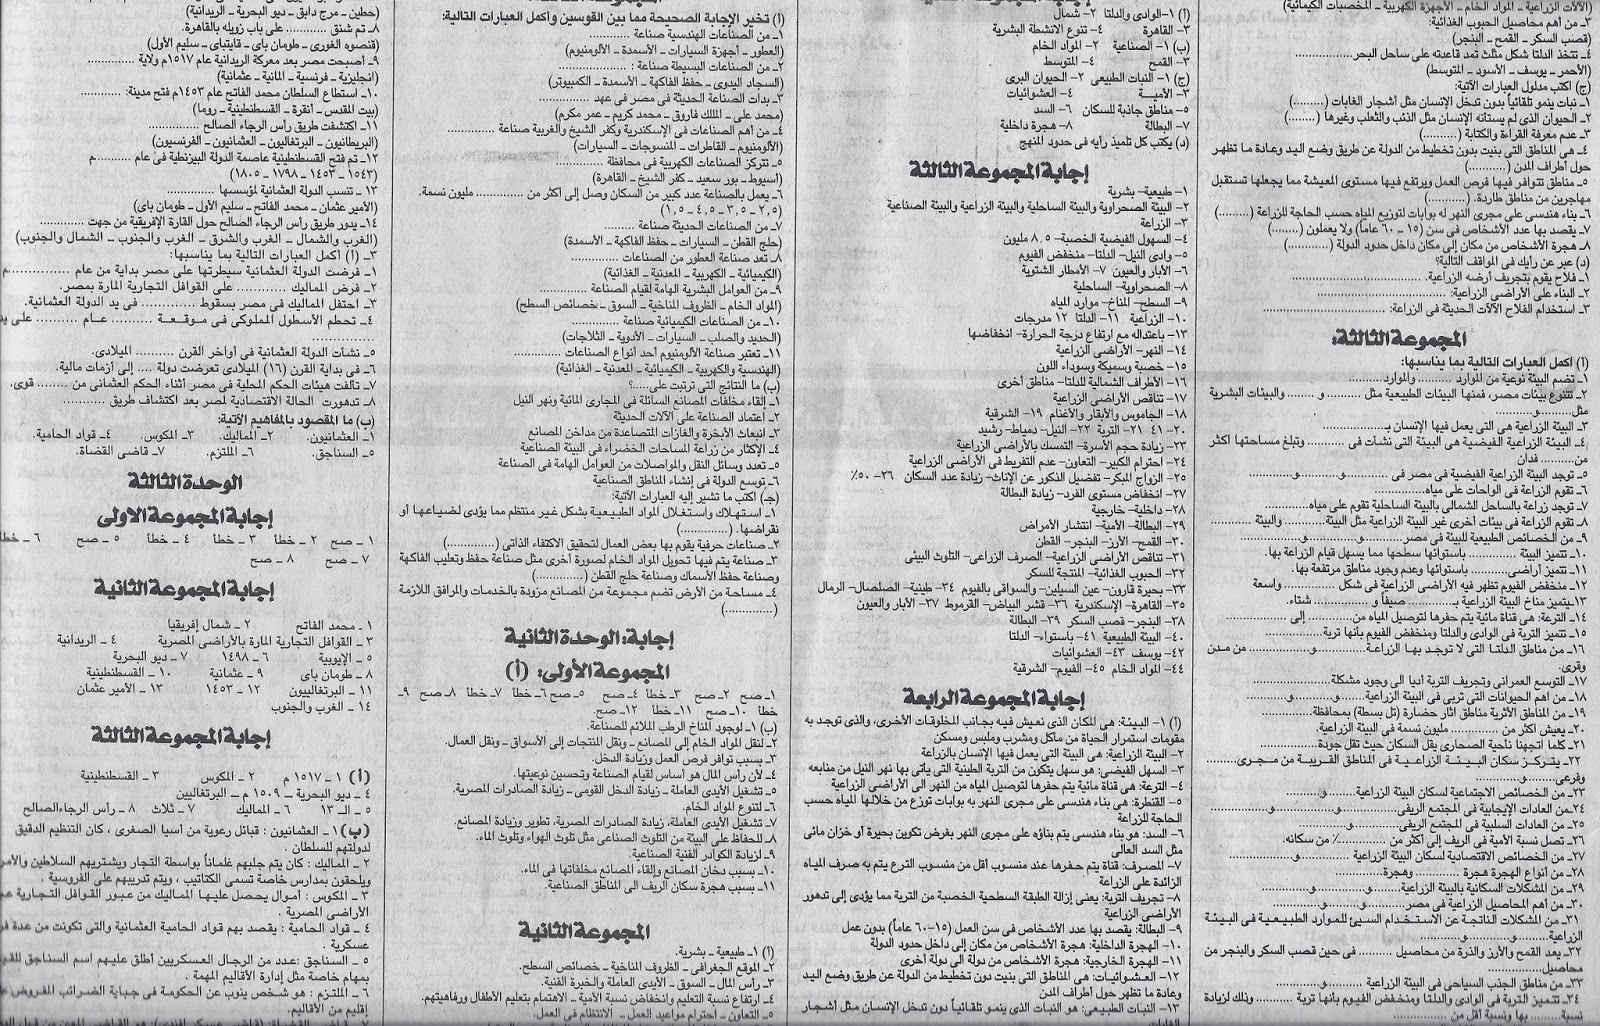 (الآلات الزراعية ـ المواد الخام ـ الأجهزة الكهربية ـ المخصبات الكيمائية)
٣ـ من أهم محاصيل الحبوب الغذائية:
(قصب السكر ـ القمح ـ البنجر)
٤ـ تتخذ الدلتا شكل مثلث تمد قاعدته على ساحل البحر............
(الأحمر ـ يوسف ـ الأسود ـ المتوسط)
(ج) اكتب مدلول العبارات الآتية:
١ـ نبات ينمو تلقائياً بدون تدخل الإنسان مثل أشجار الغابات (.........)
٢ـ الحيوان الذى لم يستانه الإنسان مثل الذئب والثعلب وغيرها (.......)
٣ـ عدم معرفة القراءة والكتابة (...........)
٤ـ هى المناطق التى بنيت بدون تخطيط من الدولة عن طريق وضع اليد وعادة ما تظهر
حول أطراف المدن (...........)
٥ـ مناطق تتوافر فيها فرص العمل ويرتفع فيها مستوى المعيشة مما يجعلها تستقبل
مهاجرين من مناطق طاردة. (...........)
٦ـ بناء هندسى على مجرى النهر له بوابات لتوزيع المياه حسب الحاجة للزراعة (.........)
٧ـ يقصد بها عدد الأشخاص فى سن (١٥ ـ ٦٠ عاماً) ولا يعملون (........)
٨ـ هجرة الأشخاص من مكان إلى مكان داخل حدود الدولة (...........)
(د) عبر عن رأيك فى المواقف التالية؟
١ـ فلاح يقوم بتجريف أرضه الزراعية. ............
٢ـ البناء على الأراضى الزراعية: ............
٣ـ استخدام الفلاح الآلات الحديثة فى الزراعة: ............
المجموعة الثالثة:
(أ) أكمل العبارات التالية بما يناسبها:
١ـ تضم البيئة نوعية من الموارد .......... والموارد..........
٢ـ تتنوع بيئات مصر، فمنها البيئات الطبيعية مثل ......... و ........ والبيئات البشرية
مثل.........و..........
٣ـ البيئة الزراعية هى التى يعمل فيها الإنسان بـ..........
٤ـ البيئة الزراعية الفيضية هى البيئة التى نشأت فى ......... وتبلغ مساحتها أكثر
من.......... فدان
٥ـ توجد البيئة الزراعية الفيضية فى مصر فى ..........و..........و..........
٦ـ تقوم الزراعة فى الواحات على مياه..........
٧ـ توجد زراعة بالساحل الشمالى بالبيئة الساحلية تقوم على مياه..........
٨ـ تقوم الزراعة فى بيئات أخرى غير البيئة الزراعية مثل البيئة.......... والبيئة ..........
٩ـ من الخصائص الطبيعية للبيئة فى مصر..........و..........و..........
١٠ـ تتميز البيئة .......... باستوائها سطحها مما يسهل قيام الزراعة بها.
١١ـ تتميز أراضى.......... باستوائها وعدم وجود مناطق مرتفعة بها.
١٢ـ منخفض الفيوم تظهر فيه الأراضى الزراعية فى شكل .......... واسعة
١٣ـ يتميز مناخ البيئة الزراعية بـ.......... صيفاً و .......... شتاء.
١٤ـ الترعة: هى قناة مائية يتم حفرها لتوصيل المياه من.......... إلى ..........
١٥ـ تتميز التربة فى الوادى والدلتا ومنخفض الفيوم بأنها تربة..........
١٦ـ من مناطق الدلتا التى لا توجد بها الزراعة..........و.......... من مدن
وقرى.
١٧ـ التوسع العمرانى وتجريف التربة أديا إلى وجود مشكلة ..........
١٨ـ من أهم الحيوانات التى تربى فى البيئة الزراعية..........و..........و..........
١٩ـ من المناطق الأثرية مناطق آثار حضارة (تل بسطة) بمحافظة..........
٢٠ـ يعيش أكثر من .......... مليون نسمة فى البيئة الزراعية.
٢١ـ كلما اتجهنا ناحية الصحارى يقل السكان حيث تقل جودة..........
٢٢ـ يتركز سكان البيئة الزراعية فى المناطق القريبة من مجرى..........
وفرعى..........
٢٣ـ من الخصائص الاجتماعية لسكان البيئة الزراعية..........و..........
٢٤ـ من العادات الإيجابية فى المجتمع الريفى..........و..........و..........
٢٥ـ من العادات السلبية فى المجتمع الريفى..........و..........
٢٦ـ تصل نسبة الأمية فى الريف إلى أكثر من ..........٪ من سكانه.
٢٧ـ من الخصائص الاقتصادية لسكان البيئة الزراعية ..........و..........
٢٨ـ من أنواع الهجرة هجرة .......... وهجرة..........
٢٩ـ من المشكلات السكانية بالبيئة الزراعية..........و..........و..........
٣٠ـ من أهم المحاصيل الزراعية فى مصر..........و..........و..........
٣١ـ من المشكلات الناتجة عن الاستخدام السيئ للموارد الطبيعية فى البيئة
الزراعية..........و..........و..........
٣٢ـ يعد القمح والأرز والذرة من محاصيل .......... فى حين قصب السكر والبنجر من
محاصيل..........
٣٣ـ من مناطق الجذب السياحى فى البيئة الزراعية..........و..........
٣٤ـ تتميز التربة فى الوادى والدلتا ومنخفض الفيوم بأنها تربة .......... وذلك لزيادة
نسبة........ بها ونسبة أقل من ..........
(أ) ١ـ الوادى والدلتا ٢ـ شمال
٣ـ القاهرة ٤ـ تنوع الأنشطة البشرية
(ب) ١ـ الصناعية ٢ـ المواد الخام
٣ـ القمح ٤ـ المتوسط
(ج) ١ـ النبات الطبيعى ٢ـ الحيوان البرى
٣ـ الأمية ٤ـ العشوائيات
٥ـ مناطق جاذبة للسكان ٦ـ السد
٧ـ البطالة ٨ـ هجرة داخلية
(د) يكتب كل تلميذ رأيه فى حدود المنهج
إجابة المجموعة الثالثة
١ـ طبيعية ـ بشرية
٢ـ البيئة الصحراوية والبيئة الساحلية والبيئة الزراعية والبيئة الصناعية
٣ـ الزراعة
٤ـ السهول الفيضية الخصبة ـ ٨,٥ مليون
٥ـ وادى النيل ـ الدلتا ـ منخفض الفيوم
٦ـ الآبار والعيون ٧ـ الأمطار الشتوية
٨ـ الصحراوية ـ الساحلية
٩ـ السطح ـ المناخ ـ موارد المياه
١٠ـ الزراعية ١١ـ الدلتا ١٢ مدرجات
١٣ـ باعتداله مع ارتفاع درجة الحرارة ـ انخفاضها
١٤ـ النهر ـ الأراضى الزراعية
١٥ـ خصبة وسميكة وسوداء اللون
١٦ـ الأطراف الشمالية للدلتا ـ مناطق أخرى
١٧ـ تناقص الأراضى الزراعية
١٨ـ الجاموس والأبقار والأغنام ١٩ـ الشرقية
٢٠ـ ٤١ ٢١ـ التربة ٢٢ـ النيل ـ دمياط ـ رشيد
٢٣ـ زيادة حجم الأسرة ـ التمسك بالأراضى الزراعية
٢٤ـ احترام الكبير ـ التعاون ـ عدم التفريط فى الأراضى الزراعية
٢٥ـ الزواج المبكر ـ تفضيل الذكور عن الإناث ـ زيادة عدد السكان ٢٦ـ ٥٠٪
٢٧ـ انخفاض مستوى الفرد ـ زيادة البطالة
٢٨ـ داخلية ـ خارجية
٢٩ـ البطالة ـ الأمية ـ انتشار الأمراض
٣٠ـ القمح ـ الأرز ـ البنجر ـ القطن
٣١ـ تناقص الأراضى الزراعية ـ الصرف الزراعى ـ التلوث البيئى
٣٢ـ الحبوب الغذائية ـ المنتجة للسكر
٣٣ـ بحيرة قارون ـ عين السيلين ـ والسواقى بالفيوم ٣٤ـ طينية ـ الصلصال ـ الرمال
٣٥ـ القاهرة ـ الإسكندرية ٣٦ـ قشر البياض ـ القرموط ٣٧ـ الآبار والعيون
٣٨ـ البنجر ـ قصب السكر ٣٩ـ البطالة
٤٠ـ البيئة الطبيعية ٤١ـ باستواء ـ الدلتا
٤٢ـ يوسف ٤٣ـ العشوائيات
٤٤ـ المواد الخام ٤٥ـ الفيوم ـ الشرقية
إجابة المجموعة الرابعة
(أ) ١ـ البيئة: هى المكان الذى نعيش فيه بجانب المخلوقات الأخرى، والذى توجد به
مقومات استمرار الحياة من مأكل ومشرب وملبس ومسكن
٢ـ البيئة الزراعية: هى البيئة التى يعمل فيها الإنسان بالزراعة
٣ـ السهل الفيضى: هو سهل يتكون من التربة الطينية التى يأتى بها نهر النيل من منابعه
٤ـ الترعة: هى قناة مائية يتم حفرها لتوصيل المياه من النهر الى الأراضى الزراعية
٥ـ القنطرة: هى بناء هندسى على مجرى النهر به بوابات توزع من خلالها المياه حسب
الحاجة للزراعة
٦ـ السد: هو بناء هندسى يتم بناؤه على مجرى النهر بغرض تكوين بحيرة أو خزان مائى
مثل السد العالى
٧ـ المصرف: قناة يتم حفرها عند منسوب أقل من منسوب الترع يتم به صرف المياه
الزائدة على الزراعة
٨ـ تجريف التربة: يعنى إزالة الطبقة السطحية الخصبة من التربة مما يؤدى إلى تدهور
الأراضى الزراعية
٩ـ البطالة: يقصد بها عدد الأشخاص فى سن العمل (١٥ـ٦٠ عاماً) بدون عمل
١٠ـ الهجرة الداخلية: هجرة الأشخاص من مكان إلى داخل حدود الدولة
١١ـ الهجرة الخارجية: هجرة الأشخاص من دولة الى دولة أخرى
١٢ـ العشوائيات: هى المناطق التى بنيت دون تخطيط من الدولة عن طريق وضع اليد
وعادة ما تظهر حول أطراف المدن
١٣ـ النبات الطبيعى: هو النبات الذى ينمو تلقائياً بدون تدخل الإنسان مثل أشجار
(أ) تخير الإجابة الصحيحة مما بين القوسين وأكمل العبارات التالية:
١ـ من الصناعات الهندسية صناعة ............
(العطور ـ أجهزة السيارات ـ الأسمدة ـ الألومنيوم)
٢ـ من الصناعات البسيطة صناعة : ............
(السجاد اليدوى ـ حفظ الفاكهة ـ الأسمدة ـ الكمبيوتر)
٣ـ بدأت الصناعة الحديثة فى مصر فى عهد ............
(محمد على ـ الملك فاروق ـ محمد كريم ـ عمر مكرم)
٤ـ من أهم الصناعات فى الإسكندرية وكفر الشيخ والغربية صناعة ............
(الألومنيوم ـ القاطرات ـ المنسوجات ـ السيارات)
٥ـ تتركز الصناعات الكهربية فى محافظة ............
(أسيوط ـ بور سعيد ـ كفر الشيخ ـ القاهرة)
٦ـ يعمل بالصناعة عدد كبير من السكان وصل إلى أكثر من ............ مليون نسمة.
(٢,٥ ـ ٣,٥ ـ ٤,٥ ـ ١,٥)
٧ـ من الصناعات الحديثة صناعة ............
(حلج القطن ـ السيارات ـ حفظ الفاكهة ـ الأسمدة)
٨ـ تعد صناعة العطور من الصناعات ............
(الكيميائية ـ الكهربية ـ المعدنية ـ الغذائية)
٩ـ من العوامل البشرية الهامة لقيام الصناعة ............
(المواد الخام ـ الظروف المناخية ـ السوق ـ خصائص السطح)
١٠ـ من الصناعات الكيميائية صناعة ............
(الحديد والصلب ـ السيارات ـ الأدوية ـ الثلاجات)
١١ـ تعتبر صناعة الألومنيوم أحد أنواع الصناعات ............
(الهندسية والكهربية ـ الكيميائية ـ المعدنية ـ الغذائية)
(ب) ما النتائج التى ترتبت على.....؟
١ـ إلقاء مخلفات المصانع السائلة فى المجارى المائية ونهر النيل
٢ـ اعتماد الصناعة على الآلات الحديثة
٣ـ انبعاث الأبخرة والغازات المتصاعدة من مداخن المصانع
٤ـ الإكثار من زراعة المساحات الخضراء فى البيئة الصناعية
٥ـ تعدد وسائل النقل والمواصلات من العوامل الهامة فى الصناعة
٦ـ توسع الدولة فى إنشاء المناطق الصناعية
(جـ) اكتب ما تشير إليه العبارات الآتية:
١ـ استهلاك واستغلال المواد الطبيعية بشكل غير منتظم مما يؤدى لضياعها أو
نقراضها. (............)
٢ـ صناعات حرفية يقوم بها بعض العمال لتحقيق الاكتفاء الذاتى (............)
٣ـ صناعة يتم فيها تحويل المواد الخام لصورة أخرى مثل صناعة حفظ وتعليب الفاكهة
وصناعة حفظ الأسماك وصناعة حلج القطن (............)
٤ـ مساحة من الأرض تضم مجموعة من المصانع مزودة بالخدمات والمرافق اللازمة
(............)
إجابة: الوحدة الثانية
المجموعة الأولى: (أ)
١ـ صح ٢ـ صح ٣ـ خطأ ٤ـ صح ٥ـ صح ٦ـ خطأ ٧ـ خطأ ٨ـ صح ٩ـ
خطأ ١٠ـ صح ١١ـ خطأ ١٢ـ صح
(ب) ١ـ لوجود المناخ الرطب الملائم للصناعة.
٢ـ لنقل المواد الخام إلى المصانع ـ ونقل المنتجات إلى الأسواق ـ ونقل العمال.
٣ـ بسبب توافر فرص العمل وزيادة الدخل.
٤ـ لأن رأس المال هو أساس لقيام الصناعة وتحسين نوعيتها.
٥ـ تشغيل الأيدى العاملة ـ زيادة الدخل القومى ـ زيادة الصادرات المصرية.
٦ـ لتنوع المواد الخام.
٧ـ تشغيل الأيدى العاملة، زيادة الصادرات المصرية، تطوير وزيادة المصانع.
٨ـ للحفاظ على البيئة من التلوث الصناعى مثل تلوث الهواء وتلوث الماء.
٩ـ لزيادة الكوادر الفنية الصناعية.
١٠ـ بسبب دخان المصانع وإلقاء المصانع مخلفاتها فى الماء.
١١ـ بسبب هجرة سكان الريف الى المناطق الصناعية.
المجموعة الثانية
(أ) ١ـ طبيعية ـ بشرية.
٢ـ الموقع الجغرافى ـ الظروف المناخية ـ خصائص السطح.
٣ـ رأس المال ـ السوق ـ الأيدى العاملة والخبرة الفنية.
٤ـ ارتفاع نسبة التعليم وانخفاض نسبة الأمية ـ الاهتمام بتعليم الأطفال ورفاهيتهم.
٥ـ التعاون ـ احترام مواعيد العمل ـ الانتظام فى العمل.
(حطين ـ مرج دابق ـ ديو البحرية ـ الريدانية)
٨ـ تم شنق ............ على باب زويله بالقاهرة.
(قنصوه الغورى ـ طومان باى ـ قايتباى ـ سليم الأول)
٩ـ أصبحت مصر بعد معركة الريدانية عام ١٥١٧م ولاية ............
(إنجليزية ـ فرنسية ـ المانية ـ عثمانية)
١٠ـ استطاع السلطان محمد الفاتح عام ١٤٥٣م فتح مدينة: ............
(بيت المقدس ـ أنقرة ـ القسطنطينية ـ روما)
١١ـ اكتشفت طريق رأس الرجاء الصالح ............
(البريطانيون ـ البرتغاليون ـ العثمانيون ـ الفرنسيون)
١٢ـ تم فتح القسطنطينية عاصمة الدولة البيزنطية فى عام ............م
(١٥٤٣ ـ ١٤٥٣ ـ ١٧٩٨ ـ ١٨٠٥)
١٣ ـ تنسب الدولة العثمانية لمؤسسها ............
(الأمير عثمان ـ محمد الفاتح ـ سليم الأول ـ طومان باى)
١٤ـ يدور طريق رأس الرجاء الصالح حول القارة الإفريقية من جهت ............
(الغرب والشمال ـ الغرب والشرق ـ الغرب والجنوب ـ الشمال والجنوب)
٣ـ (أ) أكمل العبارات التالية بما يناسبها:
١ـ فرضت الدولة العثمانية سيطرتها على مصر بداية من عام ............م
٢ـ فرض المماليك ............ على القوافل التجارية المارة بمصر.
٣ـ احتفل المماليك فى مصر بسقوط ............ فى يد الدولة العثمانية.
٤ـ تحطم الأسطول المملوكى فى موقعة ............ عام ............ على يد
............
٥ـ نشأت الدولة العثمانية فى أواخر القرن ............ الميلادى.
٦ـ فى بداية القرن (١٦) الميلادى تعرضت دولة .... إلى أزمات مالية.
٧ـ تألفت هيئات الحكم المحلية فى مصر أثناء الحكم العثمانى من ........ قوى.
٨ـ تدهورت الحالة الاقتصادية لمصر بعد اكتشاف طريق ............
(ب) ما المقصود بالمفاهيم الآتية:
١ـ العثمانيون. ٢ـ المماليك. ٣ـ المكوس. ٤ـ قواد الحامية.
٥ـ السناجق. ٦ـ الملتزم. ٧ـ قاضى القضاة.
الوحدة الثالثة
إجابة المجموعة الاولى
١ ـ صح ٢ ـ خطأ ٣ ـ خطأ ٤ ـ خطأ ٥ ـ صح ٦ ـ خطأ
٧ ـ صح ٨ ـ صح
إجابة المجموعة الثانية
١ ـ محمد الفاتح ٢ ـ شمال إفريقيا
٣ ـ القوافل التجارية المارة بالأراضى المصرية ٤ ـ الريدانية
٥ ـ الايوبية ٦ ـ ١٤٩٨ ٧ ـ ديو البحرية
٨ ـ طومان باى ٩ ـ عثمانية ١٠ ـ القسطنطينية
١١ ـ البرتغاليون ١٢ ـ ١٤٥٣ ١٣ ـ الأمير عثمان
١٤ ـ الغرب والجنوب
إجابة المجموعة الثالثة
(أ) ١ ـ ١٥١٧ م ٢ ـ المكوس ٣ ـ القسطنطينية
٤ ـ ديو البحرية ـ ١٥٠٩ م ـ البرتغاليين
٥ ـ الـ ١٣ ٦ ـ المماليك ٧ ـ ثلاث ٨ ـ رأس الرجاءالصالح
(ب) ١ ـ العثمانيون : قبائل رعوية من آسيا الصغرى ، كان التنظيم الدقيق
لدولتهم للسلطان .
٢ ـ المماليك : كان يتم جلبهم غلماناً بواسطة التجار ويشتريهم السلاطين والأمر
ويلحقون بمدارس خاصة تسمى الكتاتيب ، ويتم تدريبهم على الفروسية .
٣ ـ المكوس : أموال يحصل عليها المماليك من عبور القوافل التجارية عبـ
الأراضى المصرية .
٤ ـ قواد الحامية : يقصد بهم قواد الحامية العثمانية والتى تكونت من عدة فر
عسكرية .
٥ ـ السناجق :عدد من الرجال العسكريين أطلق عليهم اسم السناجق للقو
بمهام خاصة مثل إدارة الأقاليم المهمة .
٦ ـ الملتزم : هو شخص ينوب عن الحكومة فى جباية الضرائب المفروض عل
إقليم من الأقاليم.